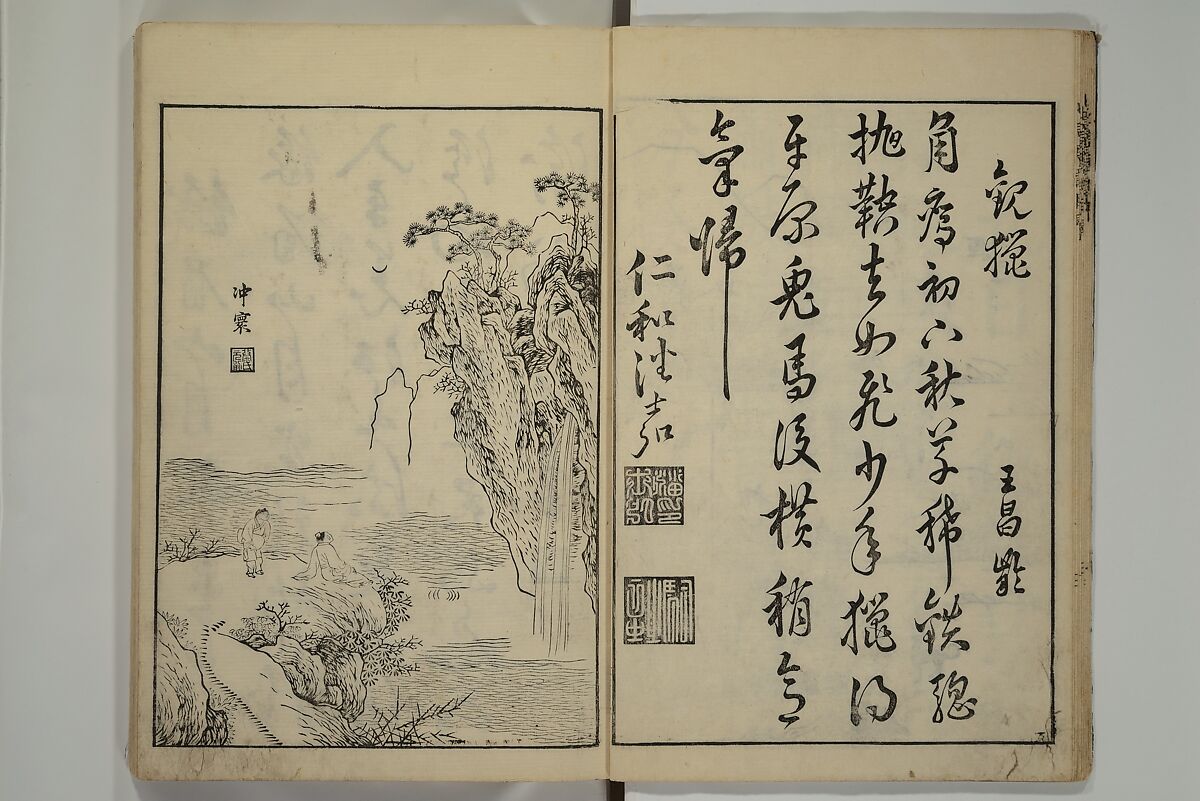 觀獵
王昌齡
角鷹初下秋草稀鉄驄
抛鞚去如飛少年獵得
平原兔馬後横稍意
氣歸
仁和 嘉
冲寰